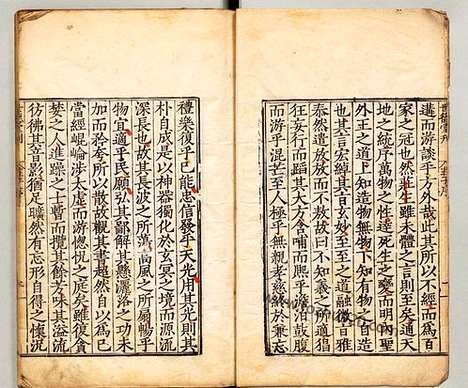 遘而游談乎方外哉此其所以不經而為百
家之冠也然莊生雖未體之言則至矣通天
地之統序萬物之性達死生之變而明內聖
外王之道上知造物無物下知有物之自造
也其言宏綽其旨玄妙至至之道融微旨雅
泰然遣放放而不敖故曰不知義之所適猖
狂妄行而蹈其大方含哺而熙乎澹泊鼓腹
而游乎混芒至人極乎無親孝慈終於兼忘
禮樂復乎已能忠信發乎天光用其光則其
朴自成是以神器獨化於玄冥之境而源流
深長也故其長波之所蕩高風之所扇暢乎
物宜適乎民願弘其鄙解其懸灑落之功未
加而矜夸所以散故觀其書超然自以為已
當經崐崘涉太虛而游惚怳之庭矣雖復貪
婪之人進躁之士暫而攬其餘芳味其溢流
彷彿其音影猶足曠然有忘形自得之懷況